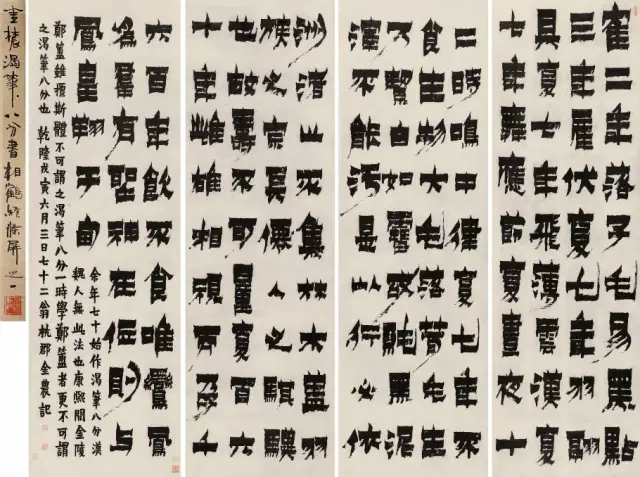 寉二年落子毛易黑點
三年產伏夏七年羽翮
具夏七年飛薄雲漢夏
七年舞應節夏晝夜十
二時鳴中律夏七年不
食生物大毛落茸毛生
乃白如雪純黑泥
濘不能污是以行必依
洲渚止不集林木蓋羽
族之宗長僊人之騏驥
也故壽不可量夏百六
十年雌雄相視而孕千
六百年飲不食唯鸞鳳
為羣有聖神在位則與
鳳皇翔于甸
余年七十始作渴筆八分漢
魏人無此法也康熙間金陵
鄭簠雖擅斯體不可謂之渴筆八分一時學鄭簠者更不可謂
之渴筆八分也 乾隆戊寅六月三日七十二翁杭郡金農記
渴筆八分書相鶴經條屏之一